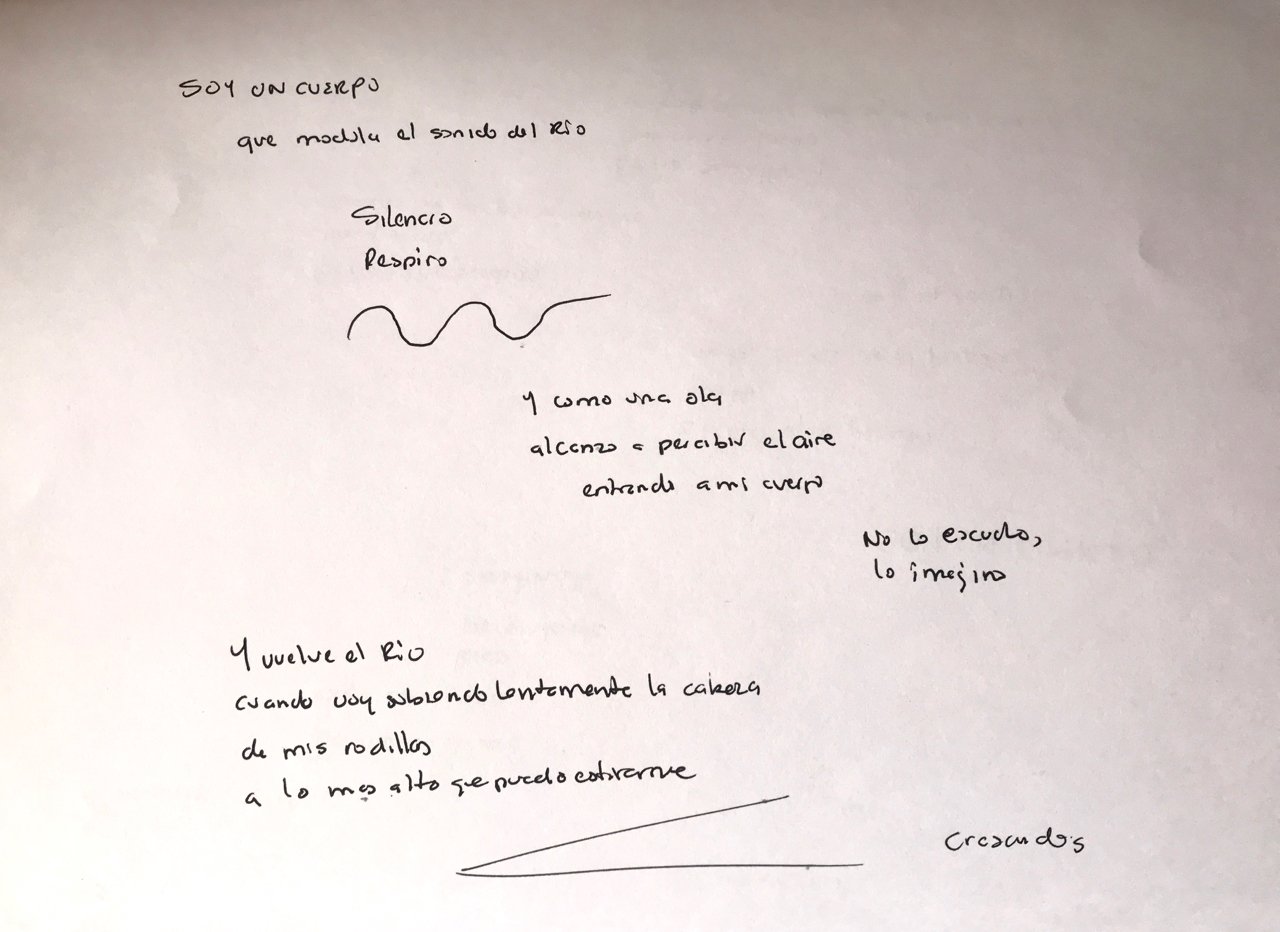 SOY UN CUERPO
que modula el sonido del Río
Silencio
Respiro
Y como una ola
alcanzo a percibir el aire
entrando a mi cuerpo
No lo escucho,
lo imagino
Y vuelve el Río
cuando voy subiendo lentamente la cabeza
de mis rodillas
a lo mas alto que puedo estirarme
Crescendos